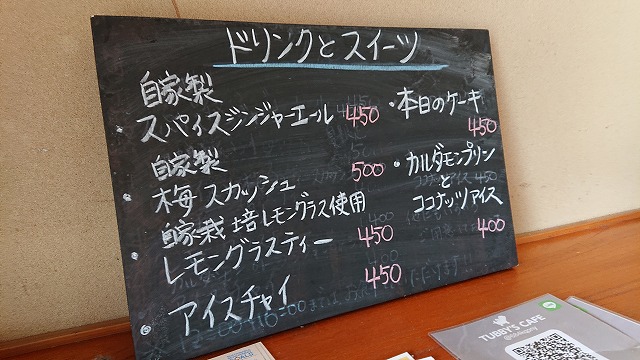 ドリンクとスイーツ
自家製
スパイスジンジャーエール 450
自家製
梅スカッシュ 500
自家栽培レモングラス使用
レモングラスティー 450
アイスチャイ 450
・本日のケーキ
450
・カルダモンプリン
と
ココナッツアイス
400
TUBBY'S CAFE